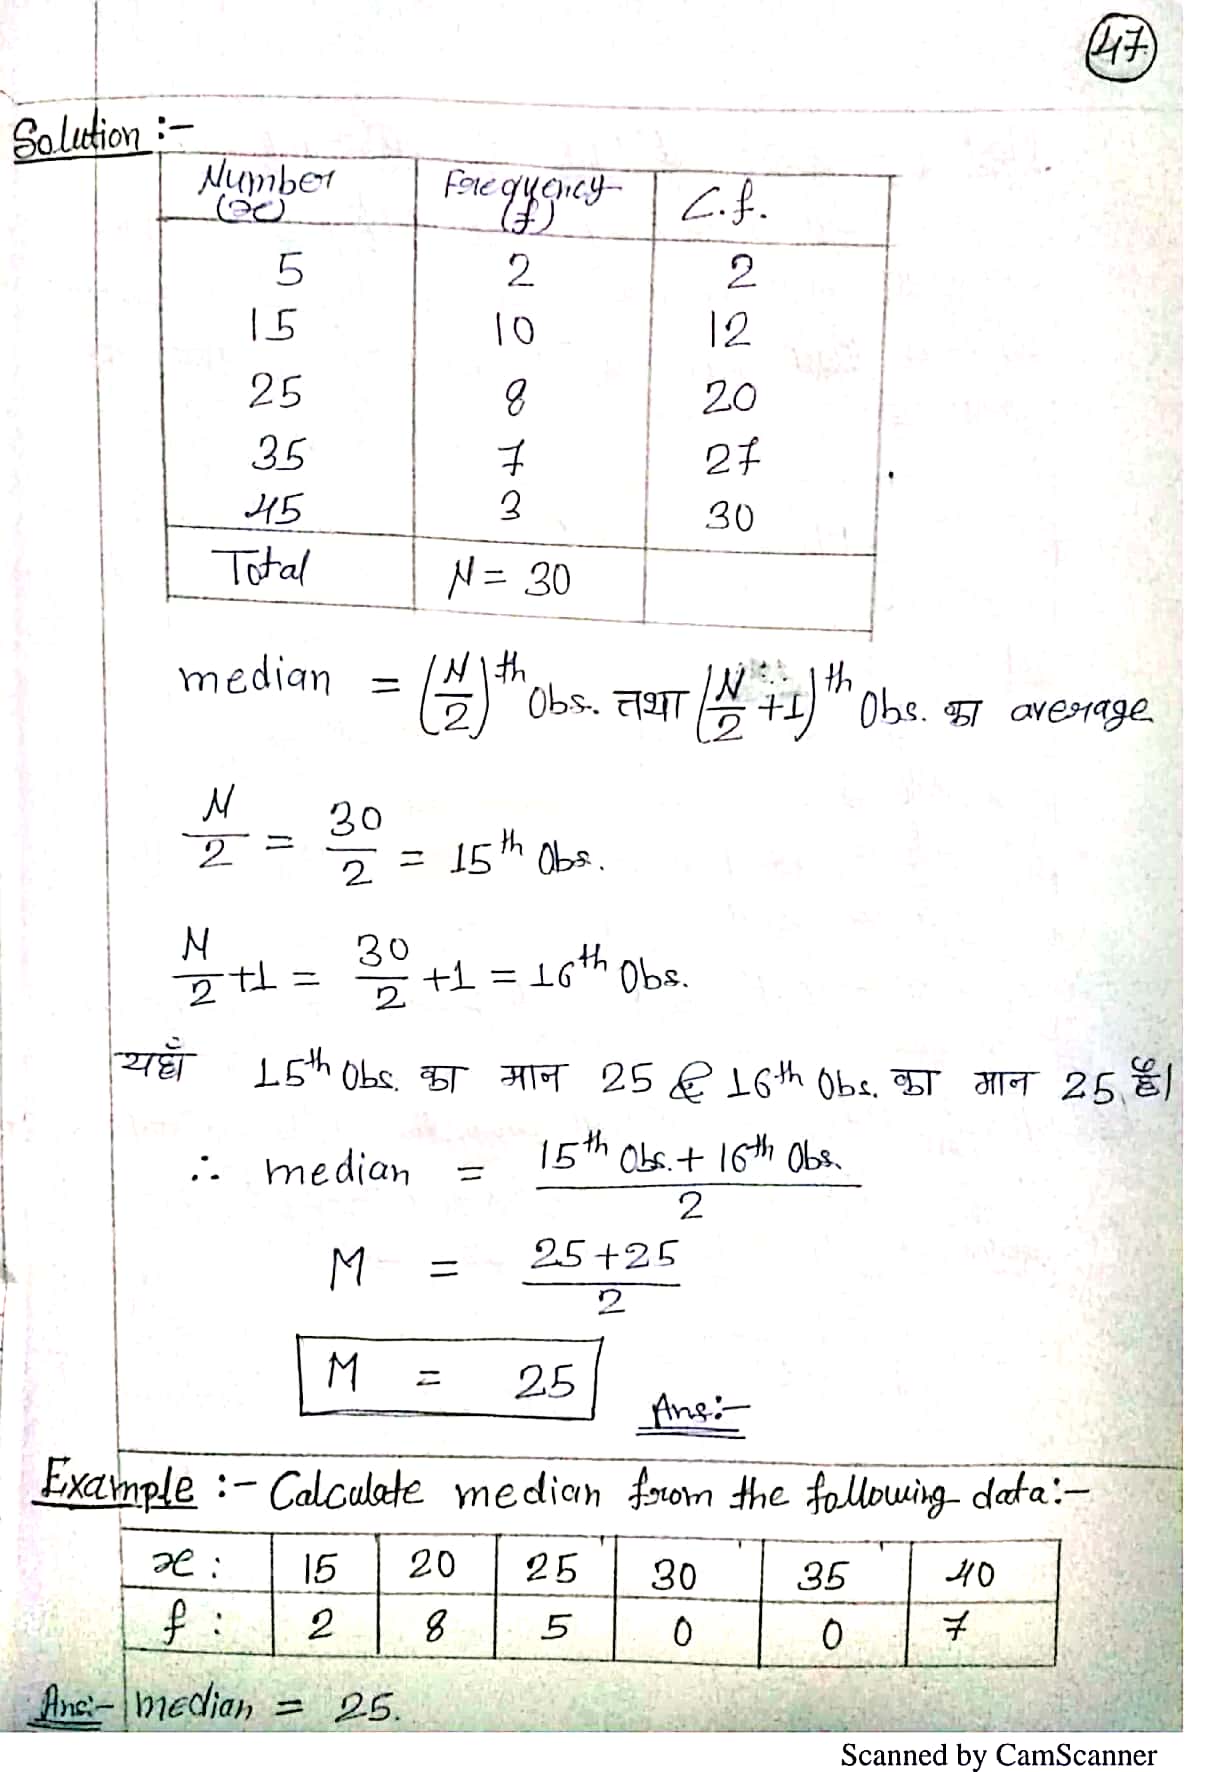 47
Solution :-
Number (x) Frequency (f) C.f.
5 2 2
15 10 12
25 8 20
35 7 27
45 3 30
Total N = 30
median = (N/2)th Obs. तथा (N/2 +1)th Obs. का average
N/2 = 30/2 = 15th Obs.
N/2 +1 = 30/2 +1 = 16th Obs.
यहाँ 15th Obs. का मान 25 & 16th Obs. का मान 25 है।
∴ median = 15th Obs. + 16th Obs. / 2
M = 25+25 / 2
M = 25
Ans:-
Example :- Calculate median from the following data:-
x : 15 20 25 30 35 40
f : 2 8 5 0 0 7
Ans:- median = 25.
Scanned by CamScanner